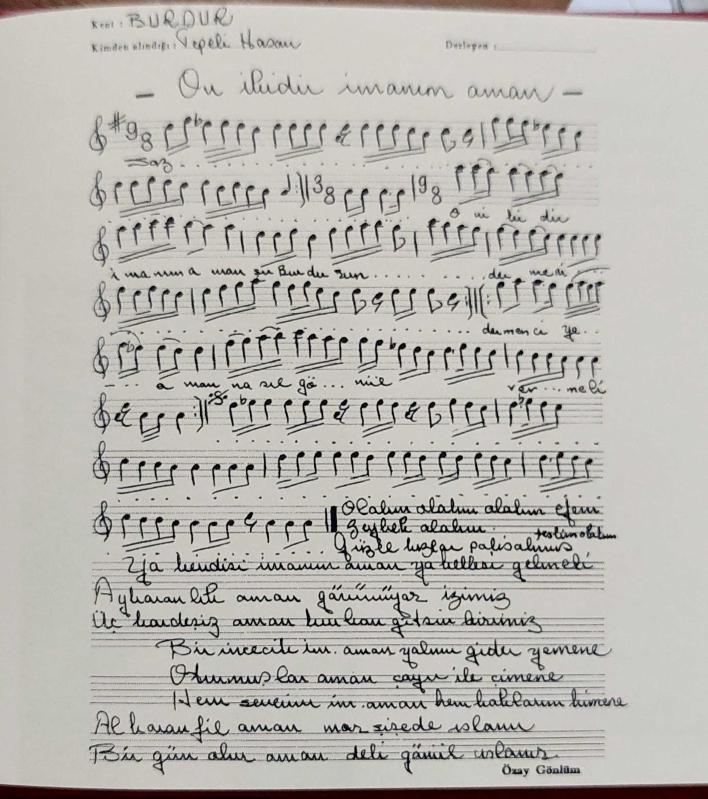 Kent : BURDUR
Kimden alındığı : Tepeli Hasan
Derleyen :
- On ikidir imanım aman -
9 8
Saz
3 8 9 8
O ni ki dir
i ma nım a man şu Bur du run
der men
dermenci ye
a man na sıl gö ... nül
ver ... meli
Olalım olalım olalım efem
Zeybek olalım
teslim olalım
kızlar
Ya kendisi imanım aman ya kellesi gelmeli
Ay karanlık aman görünmüyor izimiz
Üç kardeşiz aman kurban gitsin birimiz
Bir incecik im. aman yolum gider yemene
Oturmuşlar aman çayır ile çimene
Hem severim im. aman hem kimene
Al karanfil aman mor şişede ıslanır
Bir gün olur aman deli gönül uslanır
Özay Gönlüm